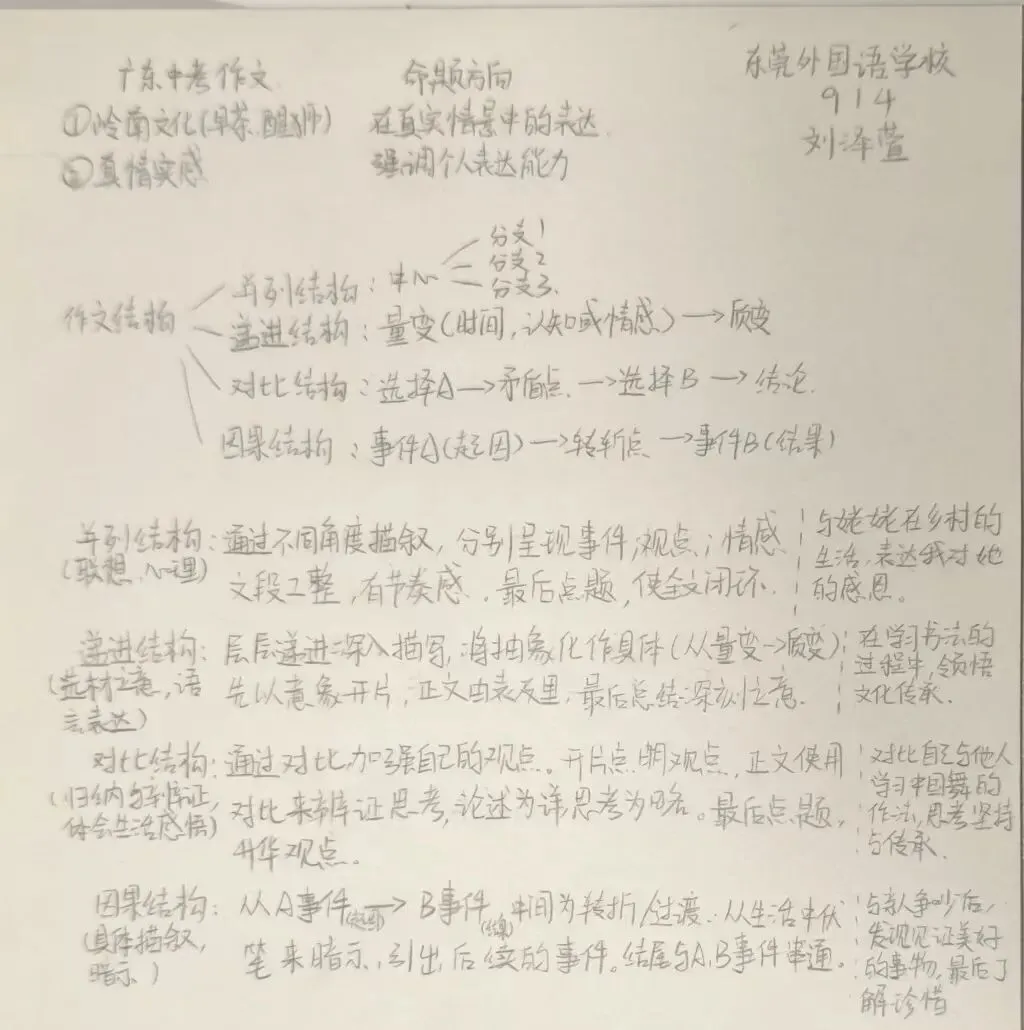 广东中考作文 命题方向 东莞外国语学校
①岭南文化(早茶、醒狮) 在真实情景中的表达 914
②真情实感 强调个人表达能力 刘泽萱
作文结构
并列结构：中心 分支1
分支2
分支3.
递进结构：量变(时间,认知或情感)→质变
对比结构：选择A→矛盾点.→选择B→结论.
因果结构：事件A(起因)→转折点→事件B(结果)
并列结构：通过不同角度描叙，分别呈现事件;观点;情感
(联想、心理) 文段工整,有节奏感.最后点题,使全文闭环.
与姥姥在乡村的
生活,表达我对她
的感恩。
递进结构：层层递进深入描写,将抽象化作具体(从量变→质变)
(选材立意,语
言表达)
先以意象开片,正文由表及里,最后总结深刻立意.
在学习书法的
过程中,领悟
文化传承.
对比结构：通过对比加强自己的观点。开片点明观点,正文使用
(归纳与辩证,
体会生活感悟)
对比来辩证思考,论述为详思考为略。最后点题,
升华观点.
对比自己与他人
学习中国舞的
作法,思考坚持
与传承.
因果结构：从A事件(起因)→B事件(结果),中间为转折/过渡.从生活中伏
(具体描叙,
暗示)
笔来暗示,引出后续的事件。结尾与A,B事件串通。
与亲人争吵后,
发现见证美好
的事物,最后了
解珍惜